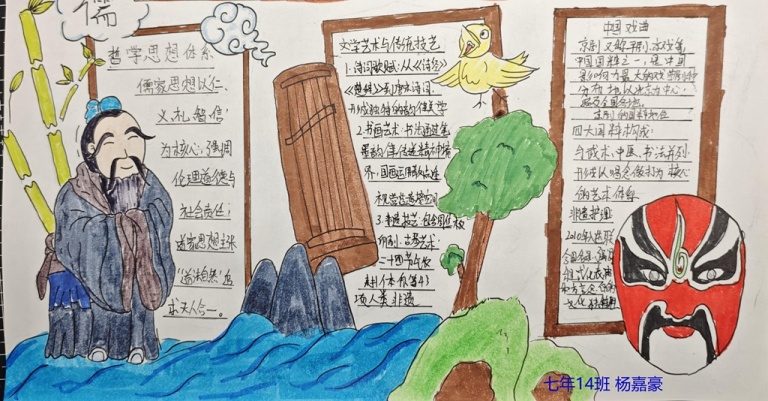 儒
哲学思想体系
儒家思想以仁、
义、礼、智、信
为核心,强调
伦理道德与
社会责任;
道家思想主张
"道法自然",追
求天人合一。
文学艺术与传统技艺
1.诗词歌赋:从《诗经》
《楚辞》到唐宋诗词,
形成独特的韵律美学
2.书画艺术:书法通过笔
视觉营造
3.非遗技艺:包含
印刷、古琴艺术、
二十四节气等
项人类非遗
中国戏曲
京剧又称平剧、京戏等,
中国国粹之一,是中国
影响力最大的戏曲剧种
分布地以北京为中心,
遍及全国各地。
四大国粹构成:
与武术、中医、书法并列
形成以唱念做打为核心
的艺术体系
非遗护理
2010年入选联
七年14班 杨嘉豪